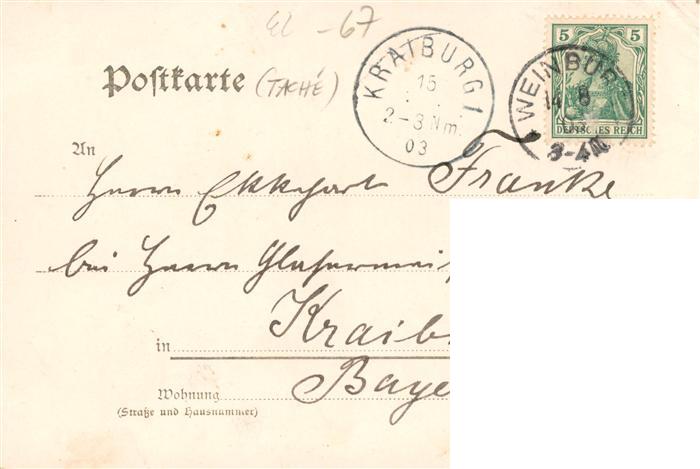 El -67
Postkarte (TACHÉ)
KRAIBURG I
15
2-3 Nm.
03
5 5
DEUTSCHES REICH
14 8
3-4N
An
Herrn Ekkehart Franke
bei Herrn Glasermei
in Kraib
Baye
Wohnung
(Straße und Hausnummer)